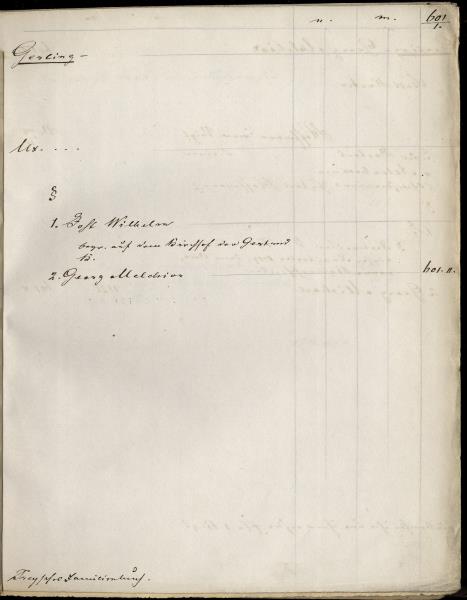 n. m. 601
1.
Gerling
Ux. . . . .
§
1. Jost Wilhelm
begr. auf dem Kirchhof der Gertrud
K.
2. Georg Melchior 601. II.
Freysche Familienbuch.